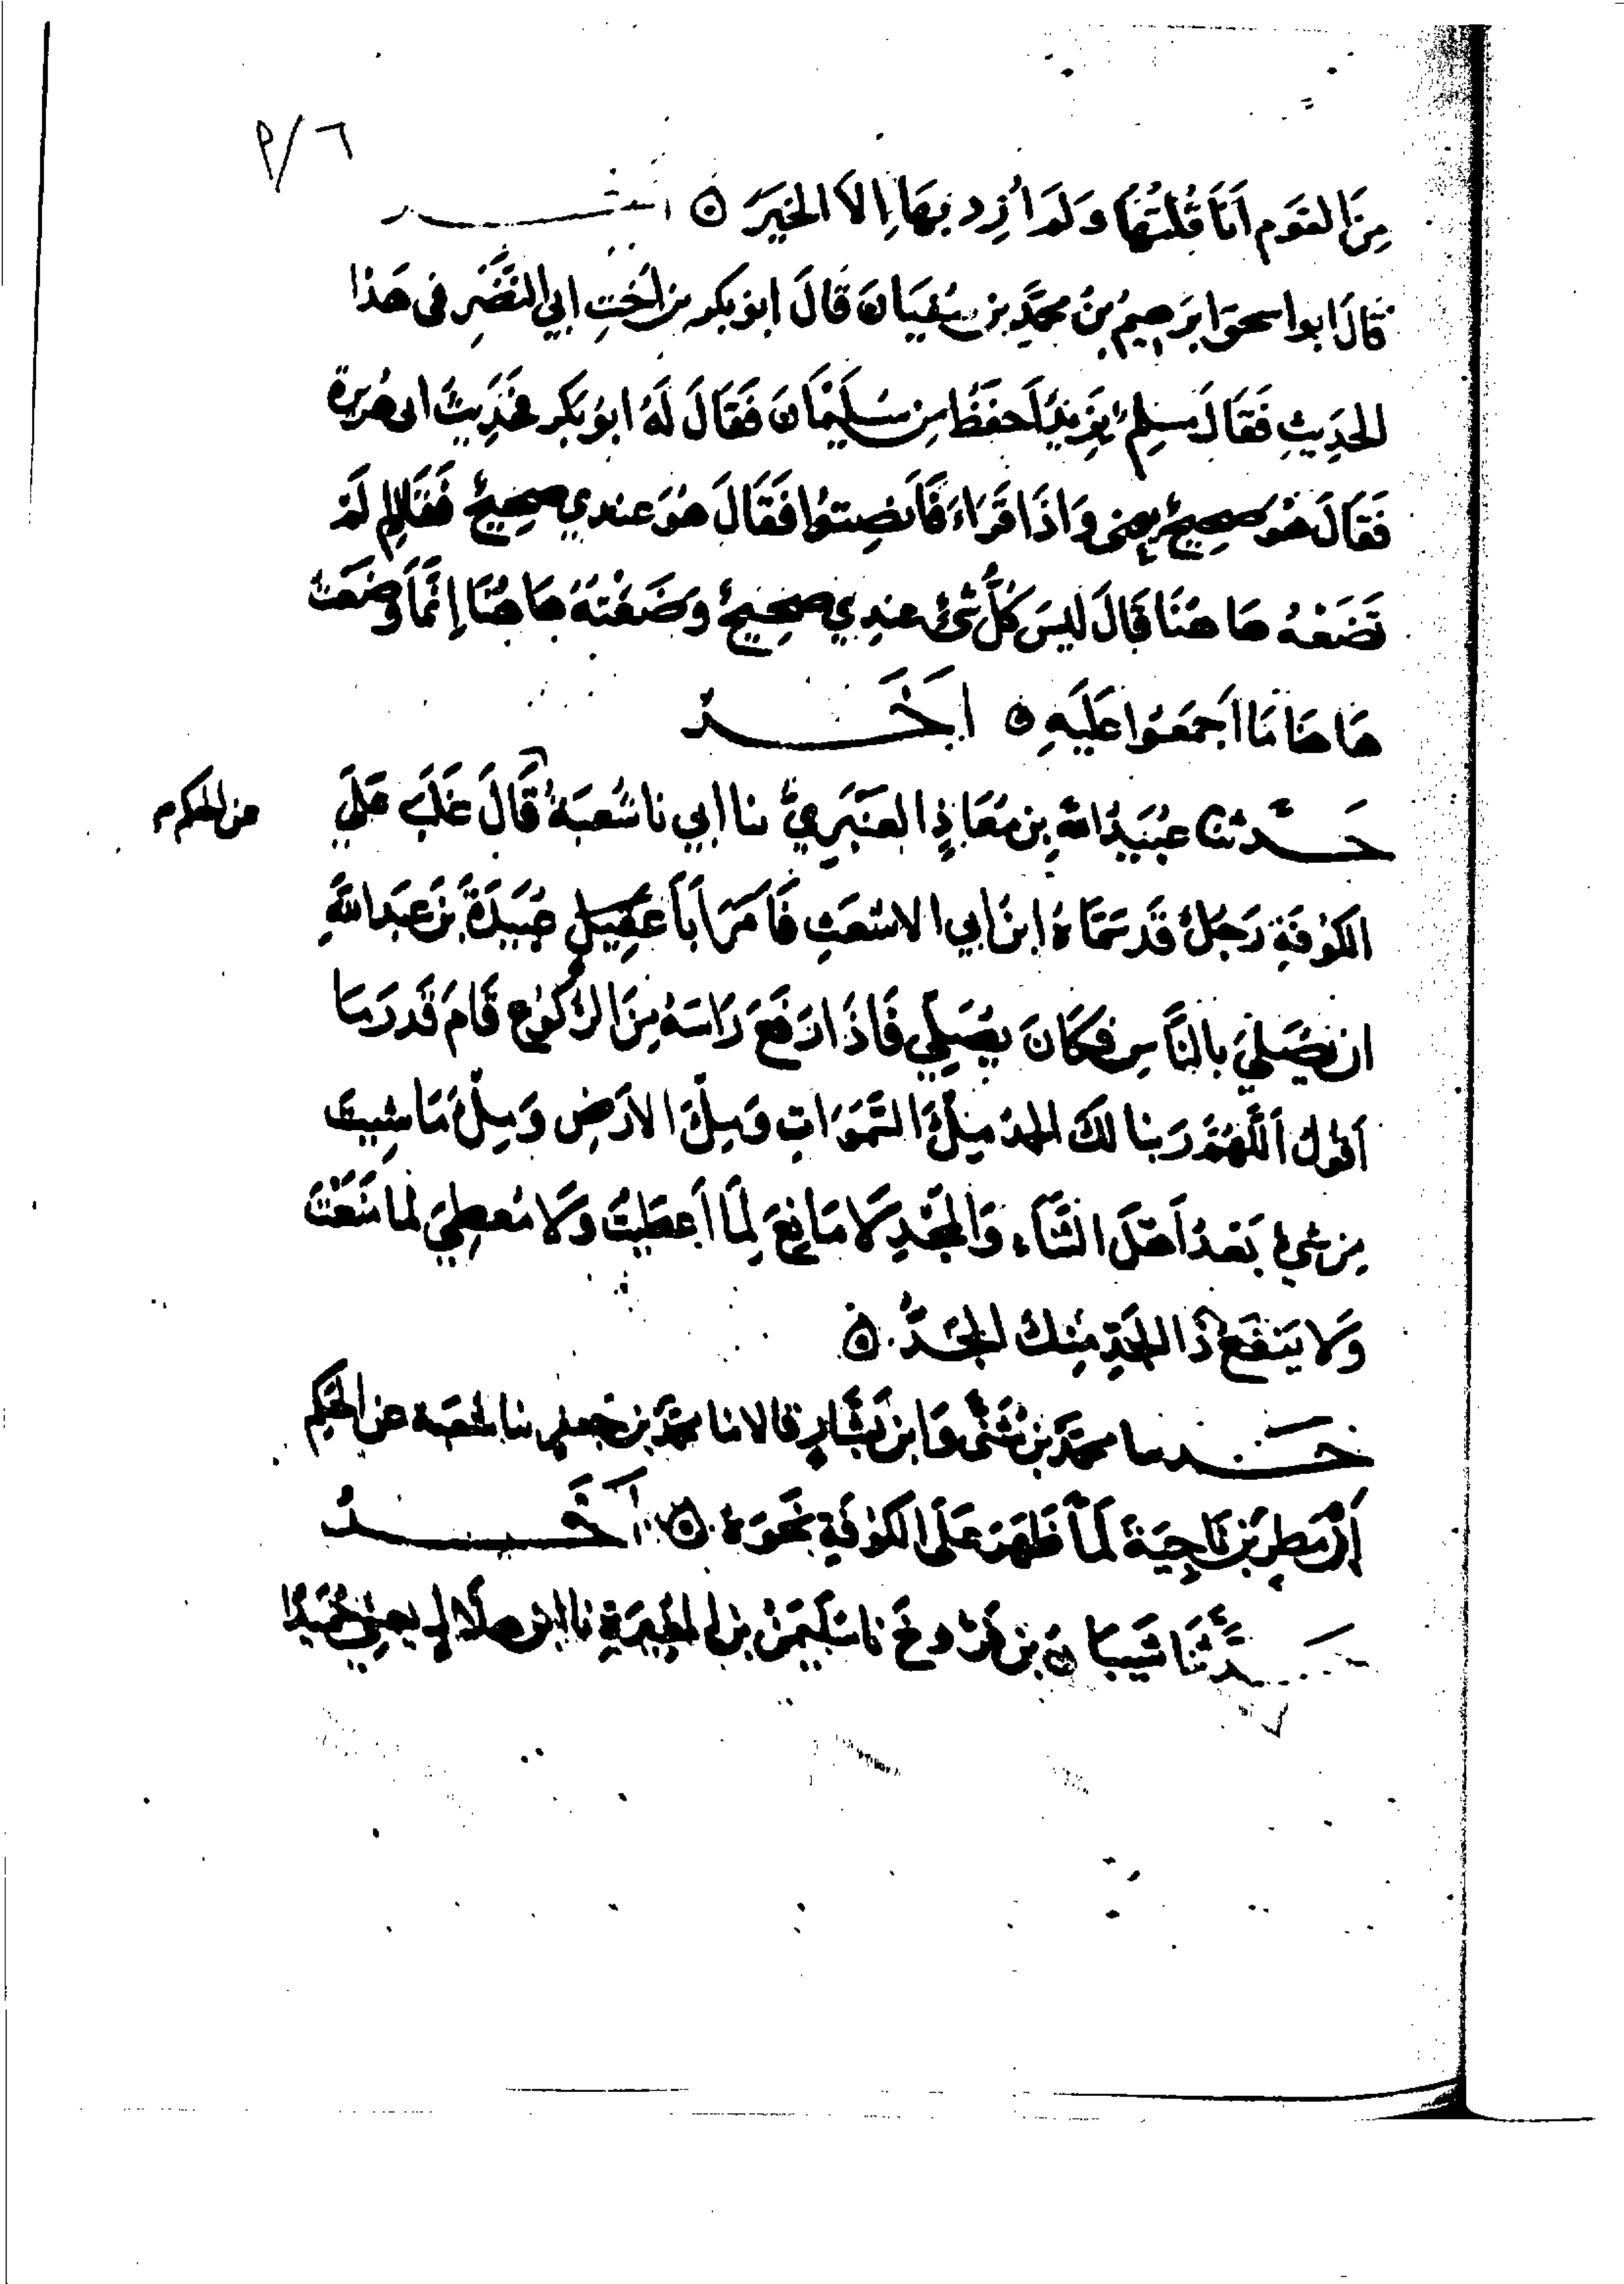 ٩/٦
مِنَ القَوم اَنَا قُلتُهَا وَلَم اُرِد بِهَا اِلا الخَيرَ ه
قَالَ ابو اسحق ابرَهِيمُ بنُ مُحمَّدِ بن سُفيَانَ قَالَ ابو بَكر بن اُختِ ابي النَّضرِ فى هَذا
الحَدِيثِ فَقَالَ مُسلِم يزيدُ اَحفَظُ مِن سُلَيمَانَ فَقَالَ لَهُ ابُو بَكر فحَدِيثُ ابى هُرَيرة
فَقَالَ هُوَ صحِيحٌ يعنى وَاذَا قَرَاءَ فَاَنصِتوُا فَقَالَ هُوَ عندي صَحِيحٌ فَقَالَ لِم لَم
تَضَعْهُ هَا هُنَا قَالَ لَيسَ كُلُّ شَىءٍ عندِي صَحِيحٌ وَضَعْتَهُ هَا هُنَا اِنَّمَا وَضَعتُ
هَا هَنا مَا اَجمَعُوا عَلَيهِ ه اَخَـــر
حَـدثنا عُبَيدُ اللهِ بن مُعَاذِ العَنبَرِيُّ نا ابي نا شُعبَةُ قَالَ غَلَبَ عَلَى
عن الحكم
الكوُفَةِ رَجُلٌ قَد سَمَّاهُ ابنَ ابي الاشعَثِ فَاَمَرَ اَبَا عُبَيدَةَ بنَ عَبدِ اللهِ
ان يُصَلِّيَ بالنَّاسِ فَكَانَ يُصَلِّي فَاذَا رَفَعَ رَاسَهُ مِنَ الرُّكوُع قَامَ قَدرَ مَا
اَقُولُ اَللَّهُمَّ رَبنا لَكَ الحمدُ مِلءَ السَّمَوَاتِ وَمِلءَ الارَضِ وَمِلءَ مَا شِيتَ
مِن شَيءٍ بَعدُ اَهلَ الثَّنَاءِ وَالمَجدِ لَا مَانِعَ لِمَا اَعطَيتَ وَلَا مُعطِيَ لمَا مَنَعْتَ
وَلا يَنفَعُ ذَا الجَدِّ مِنكَ الجَدُّ ه
حَـدثنا محمّد بن مُثَنًّى وَابن بَشَّارٍ قالا نا محمّد بن جعفر نا شعبة عن الحَكَم
اَنَّ مَطر بن نَاجِيَةَ لَمَّا ظَهَرَ عَلَى الكوُفَةِ نحوَهُ ه اَخَـــر
حَـدَّثَنَا شَيبَانُ بن فَرُّوخَ نا سُلَيمَنُ بن المُغِيرَةِ نا ابن هلَالٍ يعنِي حُمَيدًا